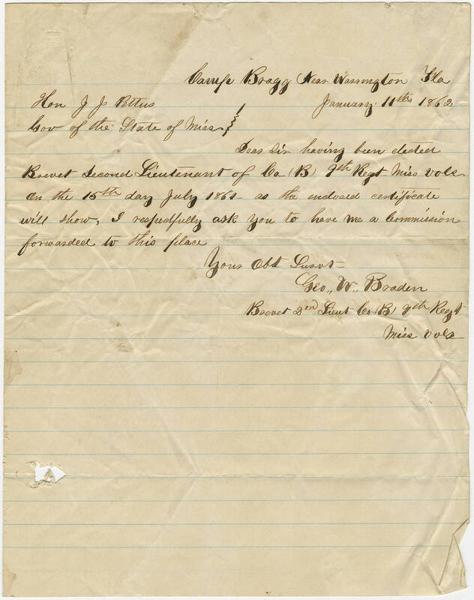 Camp Bragg Near Warrington Fla
January 11th 1862
Hon J. J. Pettus
Gov of the State of Miss
Dear Sir having been elected
Brevet Second Lieutenant of Co (B) 9th Regt Miss Vols
on the 15th day July 1861 as the inclosed certificate
will show, I respectfully ask You to have me a Commission
forwarded to this place
Yours Obt Survt
Geo., W., Braden
Brevet 2nd Lieut Co (B) 9th Regt
Miss Vols